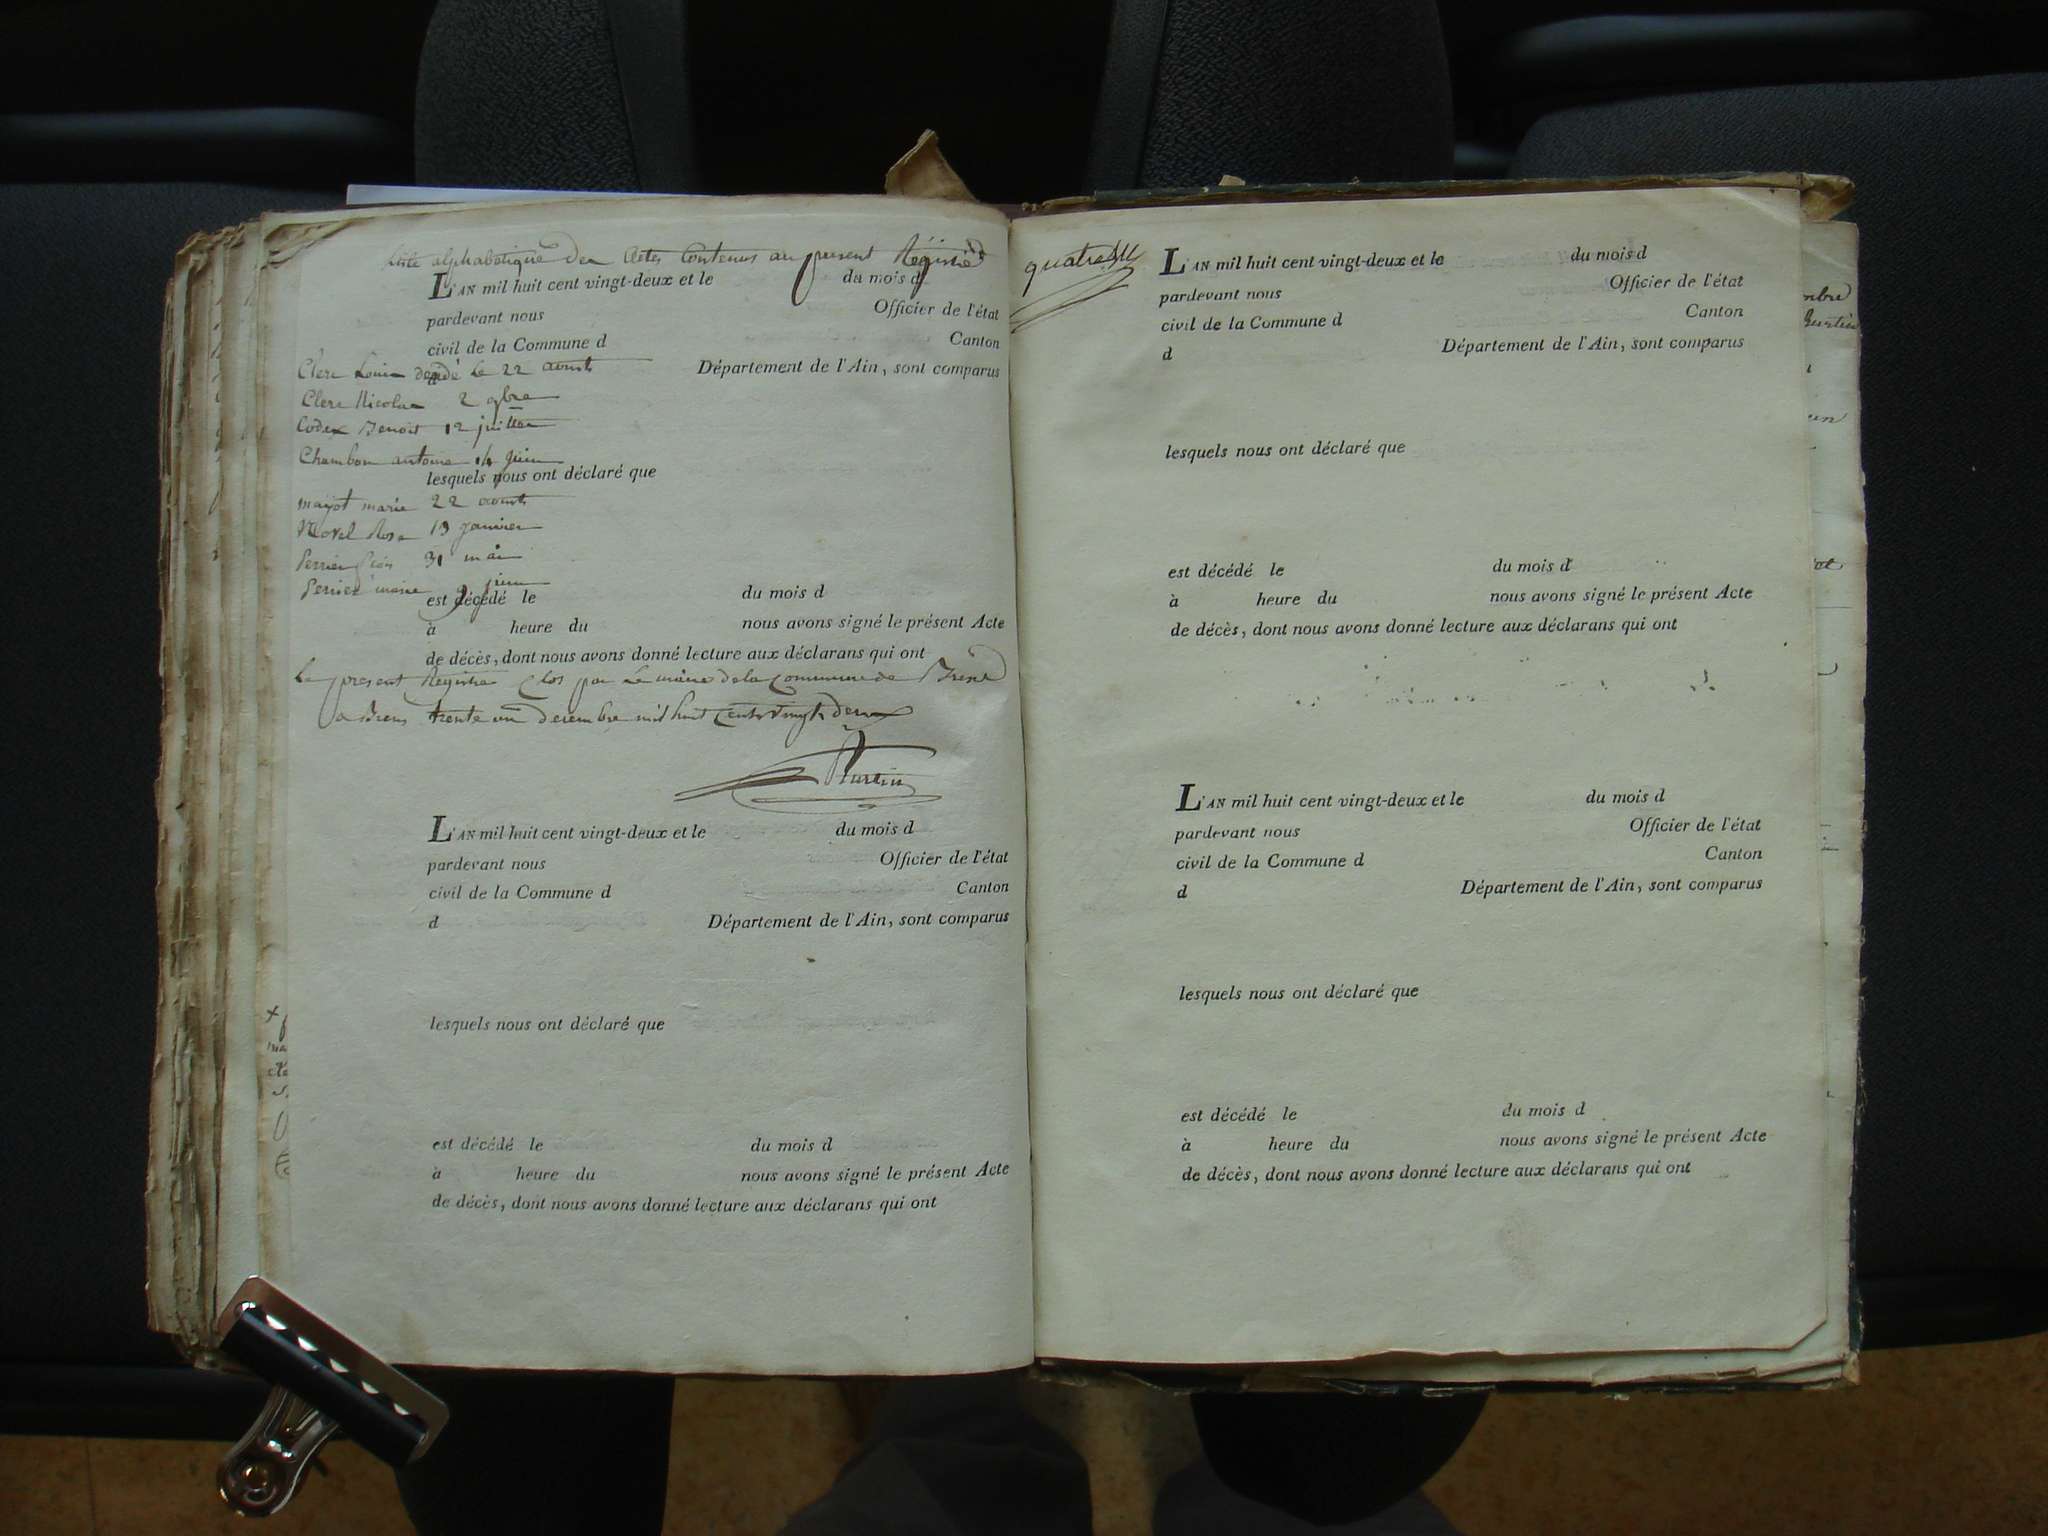 Liste alphabétique des Actes Contenus au présent Registre
L'AN mil huit cent vingt-deux et le du mois d
pardevant nous Officier de l'état
civil de la Commune d Canton
Département de l'Ain, sont comparus
Clerc Louis décédé le 22 aoust
Clerc Nicolas 2 9bre
Codex Benoit 12 juillet
Chambon antoine 14 juin
lesquels nous ont déclaré que
mayot marie 22 aoust
Novel Rose 13 janvier
Perrier 31 mai
Perrier marie 9 juin
est décédé le du mois d
à heure du nous avons signé le présent Acte
de décès, dont nous avons donné lecture aux déclarans qui ont
Le présent Registre Clos par Le maire de la Commune de Brens
a Brens trente un decembre mil huit Cent vingt deux
L'AN mil huit cent vingt-deux et le du mois d
pardevant nous Officier de l'état
civil de la Commune d Canton
d Département de l'Ain, sont comparus
lesquels nous ont déclaré que
est décédé le du mois d
à heure du nous avons signé le présent Acte
de décès, dont nous avons donné lecture aux déclarans qui ont
quatre
L'AN mil huit cent vingt-deux et le du mois d
pardevant nous Officier de l'état
civil de la Commune d Canton
d Département de l'Ain, sont comparus
lesquels nous ont déclaré que
est décédé le du mois d
à heure du nous avons signé le présent Acte
de décès, dont nous avons donné lecture aux déclarans qui ont
L'AN mil huit cent vingt-deux et le du mois d
pardevant nous Officier de l'état
civil de la Commune d Canton
d Département de l'Ain, sont comparus
lesquels nous ont déclaré que
est décédé le du mois d
à heure du nous avons signé le présent Acte
de décès, dont nous avons donné lecture aux déclarans qui ont